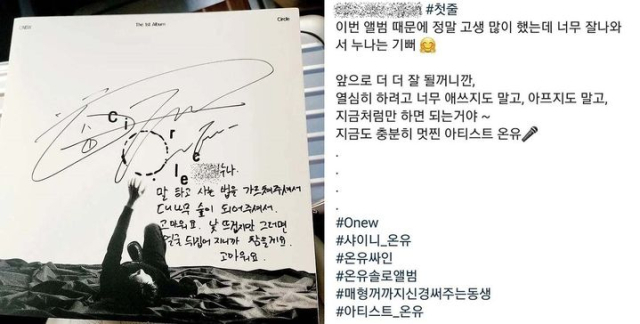 The 1st Album
Circle
Ci r c le
누나.
말 하고 사는 법을 가르쳐주셔서
대나무 숲이 되어주셔서.
고마워요. 낯 뜨겁지만 그러면
얼굴 뒤집어 지니까 참을게요.
고마워요.
#첫줄
이번 앨범 때문에 정말 고생 많이 했는데 너무 잘나와
서 누나는 기뻐 🤗
앞으로 더 더 잘 될꺼니깐,
열심히 하려고 너무 애쓰지도 말고, 아프지도 말고,
지금처럼만 하면 되는거야 ~
지금도 충분히 멋찐 아티스트 온유🎤
.
.
.
.
#Onew
#샤이니_온유
#온유싸인
#온유솔로앨범
#매형꺼까지신경써주는동생
#아티스트_온유